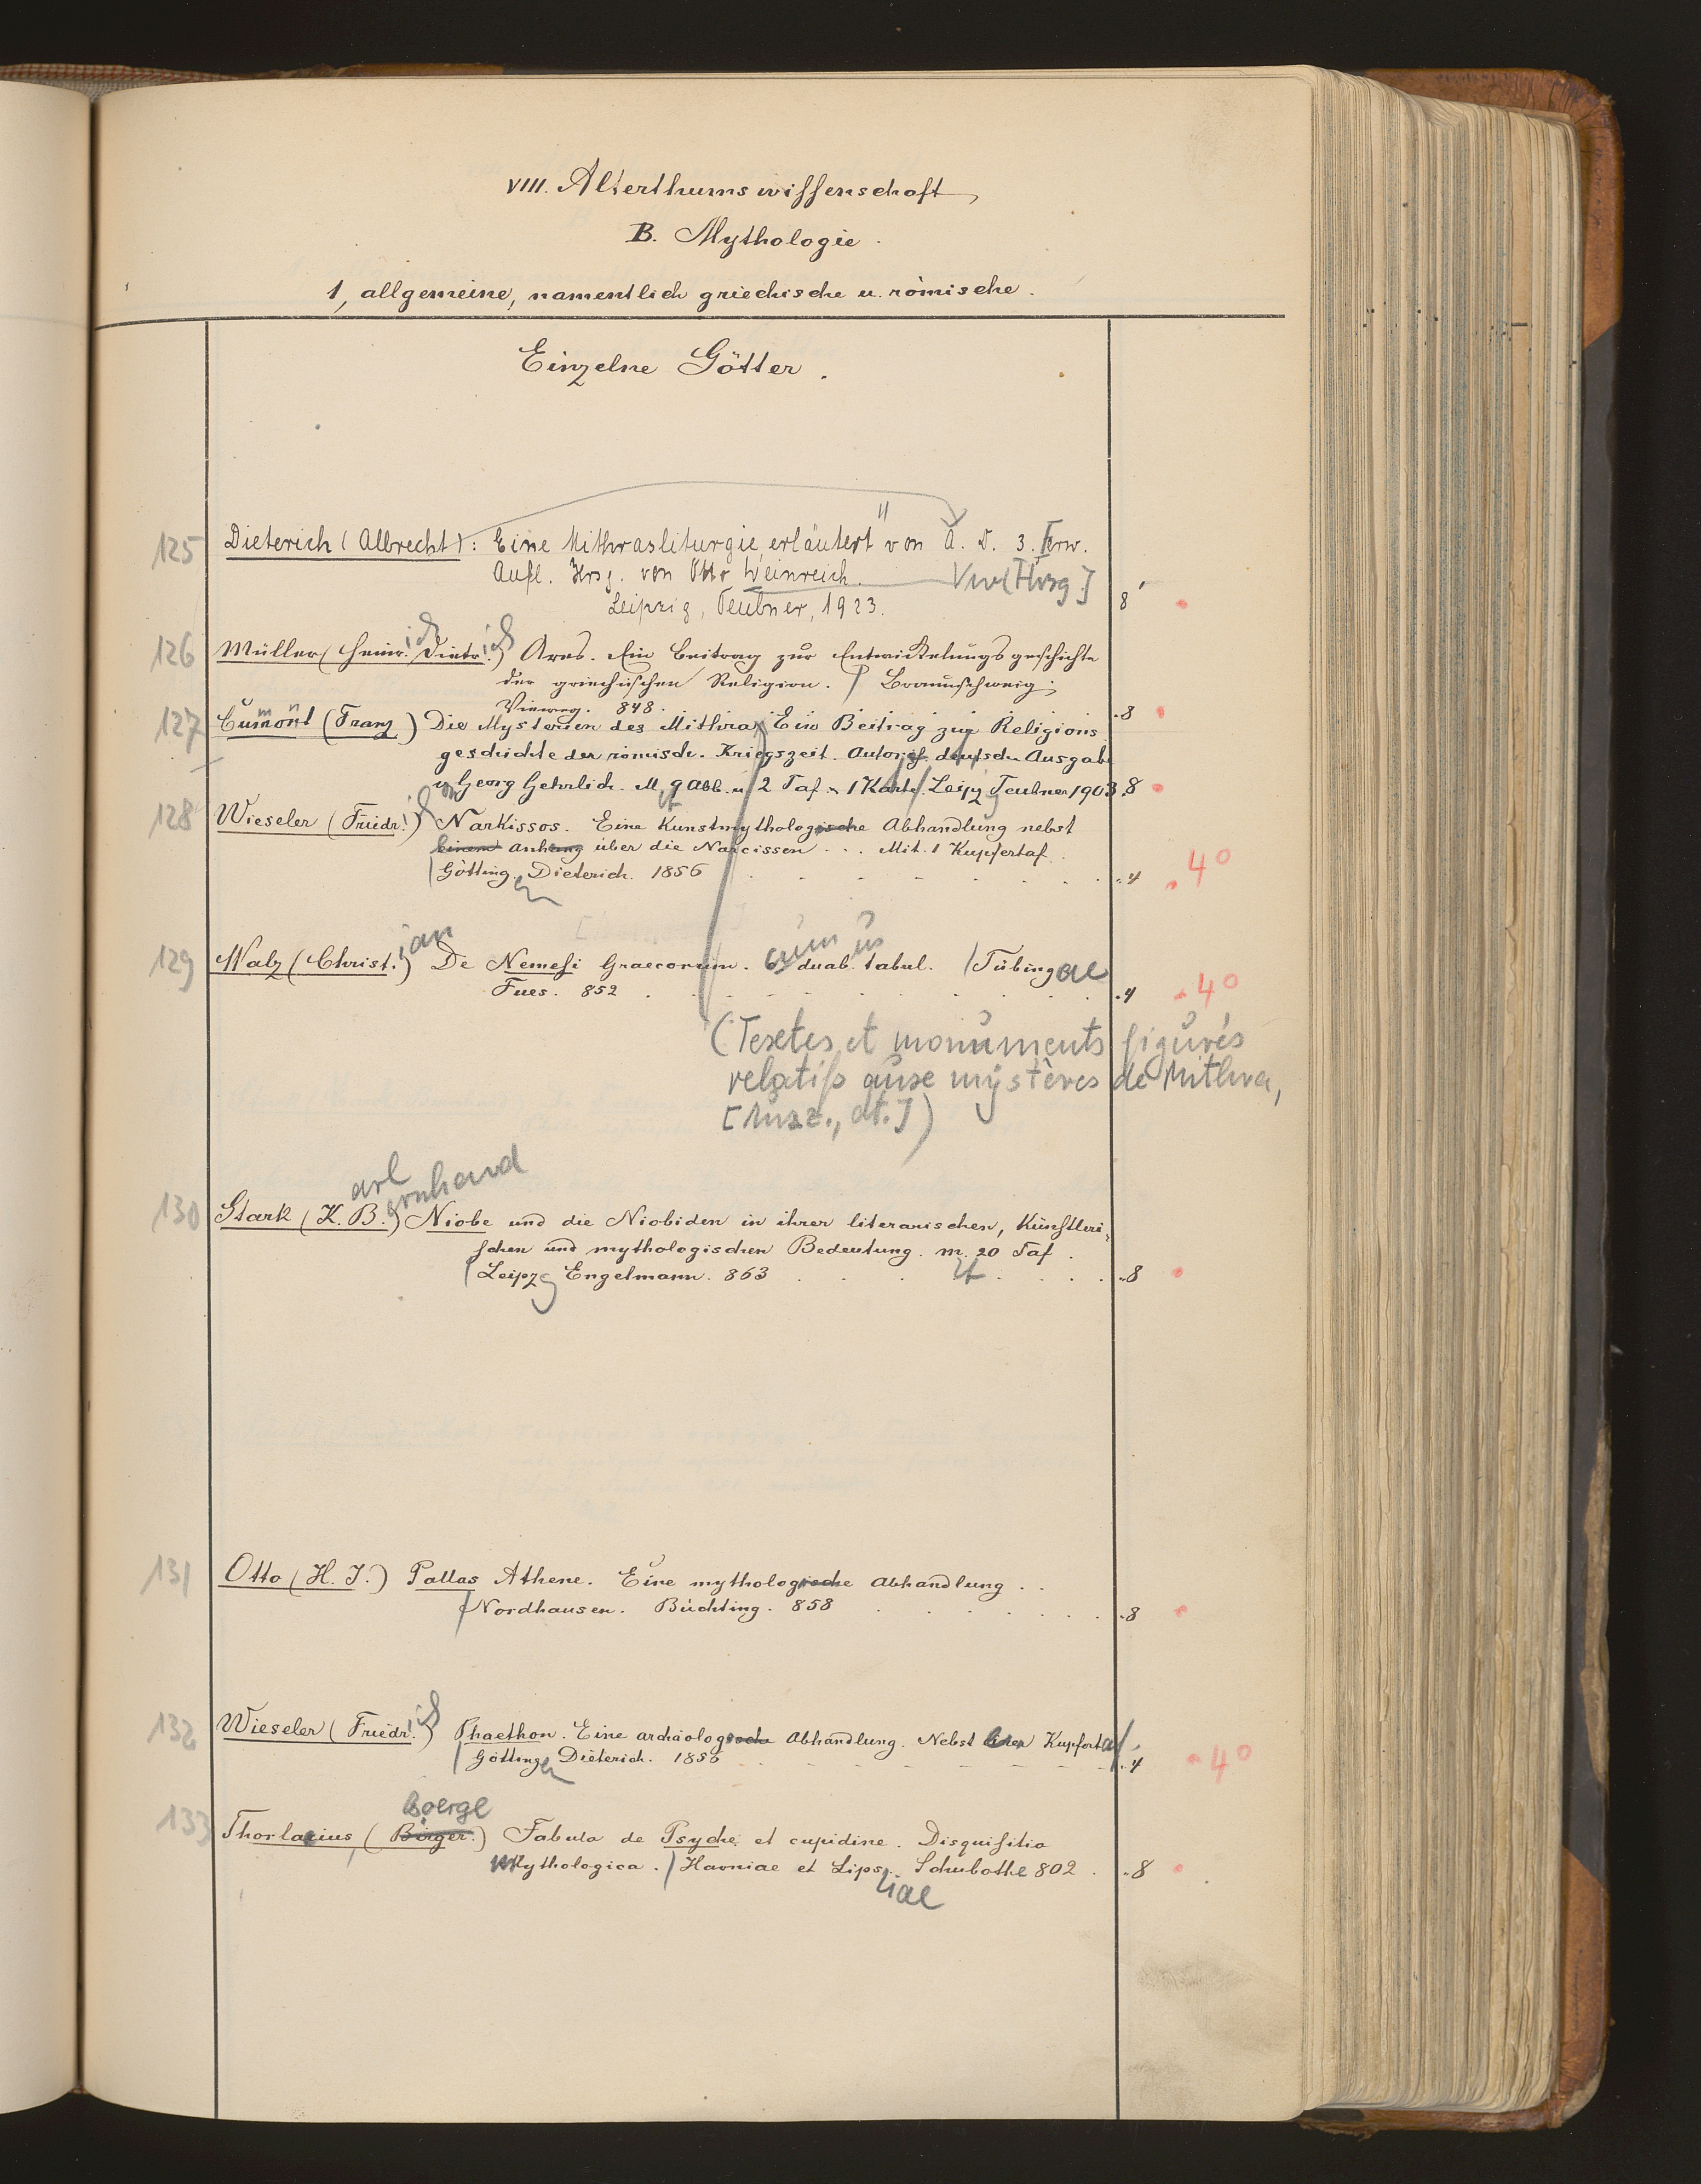 VIII. Alterthumswissenschaft
B. Mythologie.
1, allgemeine, namentlich griechische u. römische.
Einzelne Götter.
125 Dieterich (Albrecht): Eine Mithrasliturgie, erläutert von A. D. 3. Erw.
Aufl. Hrsg. von Otto Weinreich. Vw [Hrsg.]
Leipzig, Teubner, 1923. 8
126 Müller (Heinr.ich Dietr.ich) Ares. Ein Beitrag zur Entwickelungsgeschichte
der griechischen Religion. Braunschweig,
Vieweg. 848. 8
127 Cumont (Franz) Die Mysterien des Mithra. Ein Beitrag zur Religions
geschichte der römisch. Kriegszeit. Autoris. deutsche Ausgabe
von Georg Gehrlich. M. 9 Abb. u. 2 Taf. u. 1 Karte. Leipzg Teubner 1903. 8
128 Wieseler (Friedr.ich) Narkissos. Eine Kunstmythologische Abhandlung nebst
einem Anhang über die Narcissen ... Mit 1 Kupfertaf.
Götting.en Dieterich. 1856 4 4°
129 Walz (Christ.ian) De Nemesi Graecorum. cum duab.us tabul. Tübingae
Fues. 852 4 4°
(Textes et monuments figurés
relatifs aux mystères de Mithra,
[Ausz., dt.])
130 Stark (K.arl B.ernhard) Niobe und die Niobiden in ihrer literarischen, Künstleri-
schen und mythologischen Bedeutung. m. 20 Taf.
Leipzg Engelmann. 863 8
131 Otto (H. J.) Pallas Athene. Eine mythologische Abhandlung ..
Nordhausen. Büchting. 858 8
132 Wieseler (Friedr.ich) Phaethon. Eine archäologische Abhandlung. Nebst einer Kupfertaf.
Göttingen Dieterich. 1856 4 4°
Boerge
133 Thorlacius, (Birger.) Fabula de Psyche et cupidine. Disquisitio
Mythologica. Havniae et Lips.iae Schubothe 802. 8